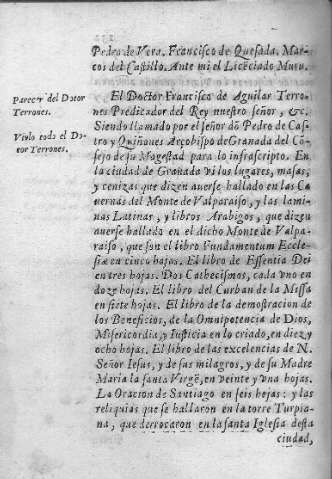 Pedro de Vera. Francisco de Quesada. Mar-
cos del Castillo. Ante mi el Licẽciado Muru.
Parecer del Dotor
Terrones.
Violo todo el Do-
tor Terrones.
El Doctor Francisco de Aguilar Terro-
nes Predicador del Rey nuestro señor, &c.
Siendo llamado por el señor dõ Pedro de Cas-
tro y Quiñones Arçobispo de Granada del Cõ-
sejo de su Magestad para lo infrascripto. En
la ciudad de Granada vi los lugares, masas,
y cenizas que dizen auerse hallado en las Ca
uernas del Monte de Valparaiso, y las lami-
nas Latinas, y libros Arabigos, que dizen
auerse hallado en el dicho Monte de Valpa-
raiso, que son el libro Fundamentum Eccle-
siæ en cinco hojas. El libro de Essentia Dei
en tres hojas. Dos Cathecismos, cada vno en
doze hojas. El libro del Curban de la Missa
en siete hojas. El libro de la demostracion de
los Beneficios, de la Omnipotencia de Dios,
Misericordia, y Iusticia en lo criado, en diez y
ocho hojas. El libro de las excelencias de N.
Señor Iesus, y de sus milagros, y de su Madre
Maria la santa Virgẽ, en veinte y vna hojas.
La Oracion de Santiago en seis hojas: y las
reliquias que se hallaron en la torre Turpia-
na, que derrocaron en la santa Iglesia desta
ciudad,